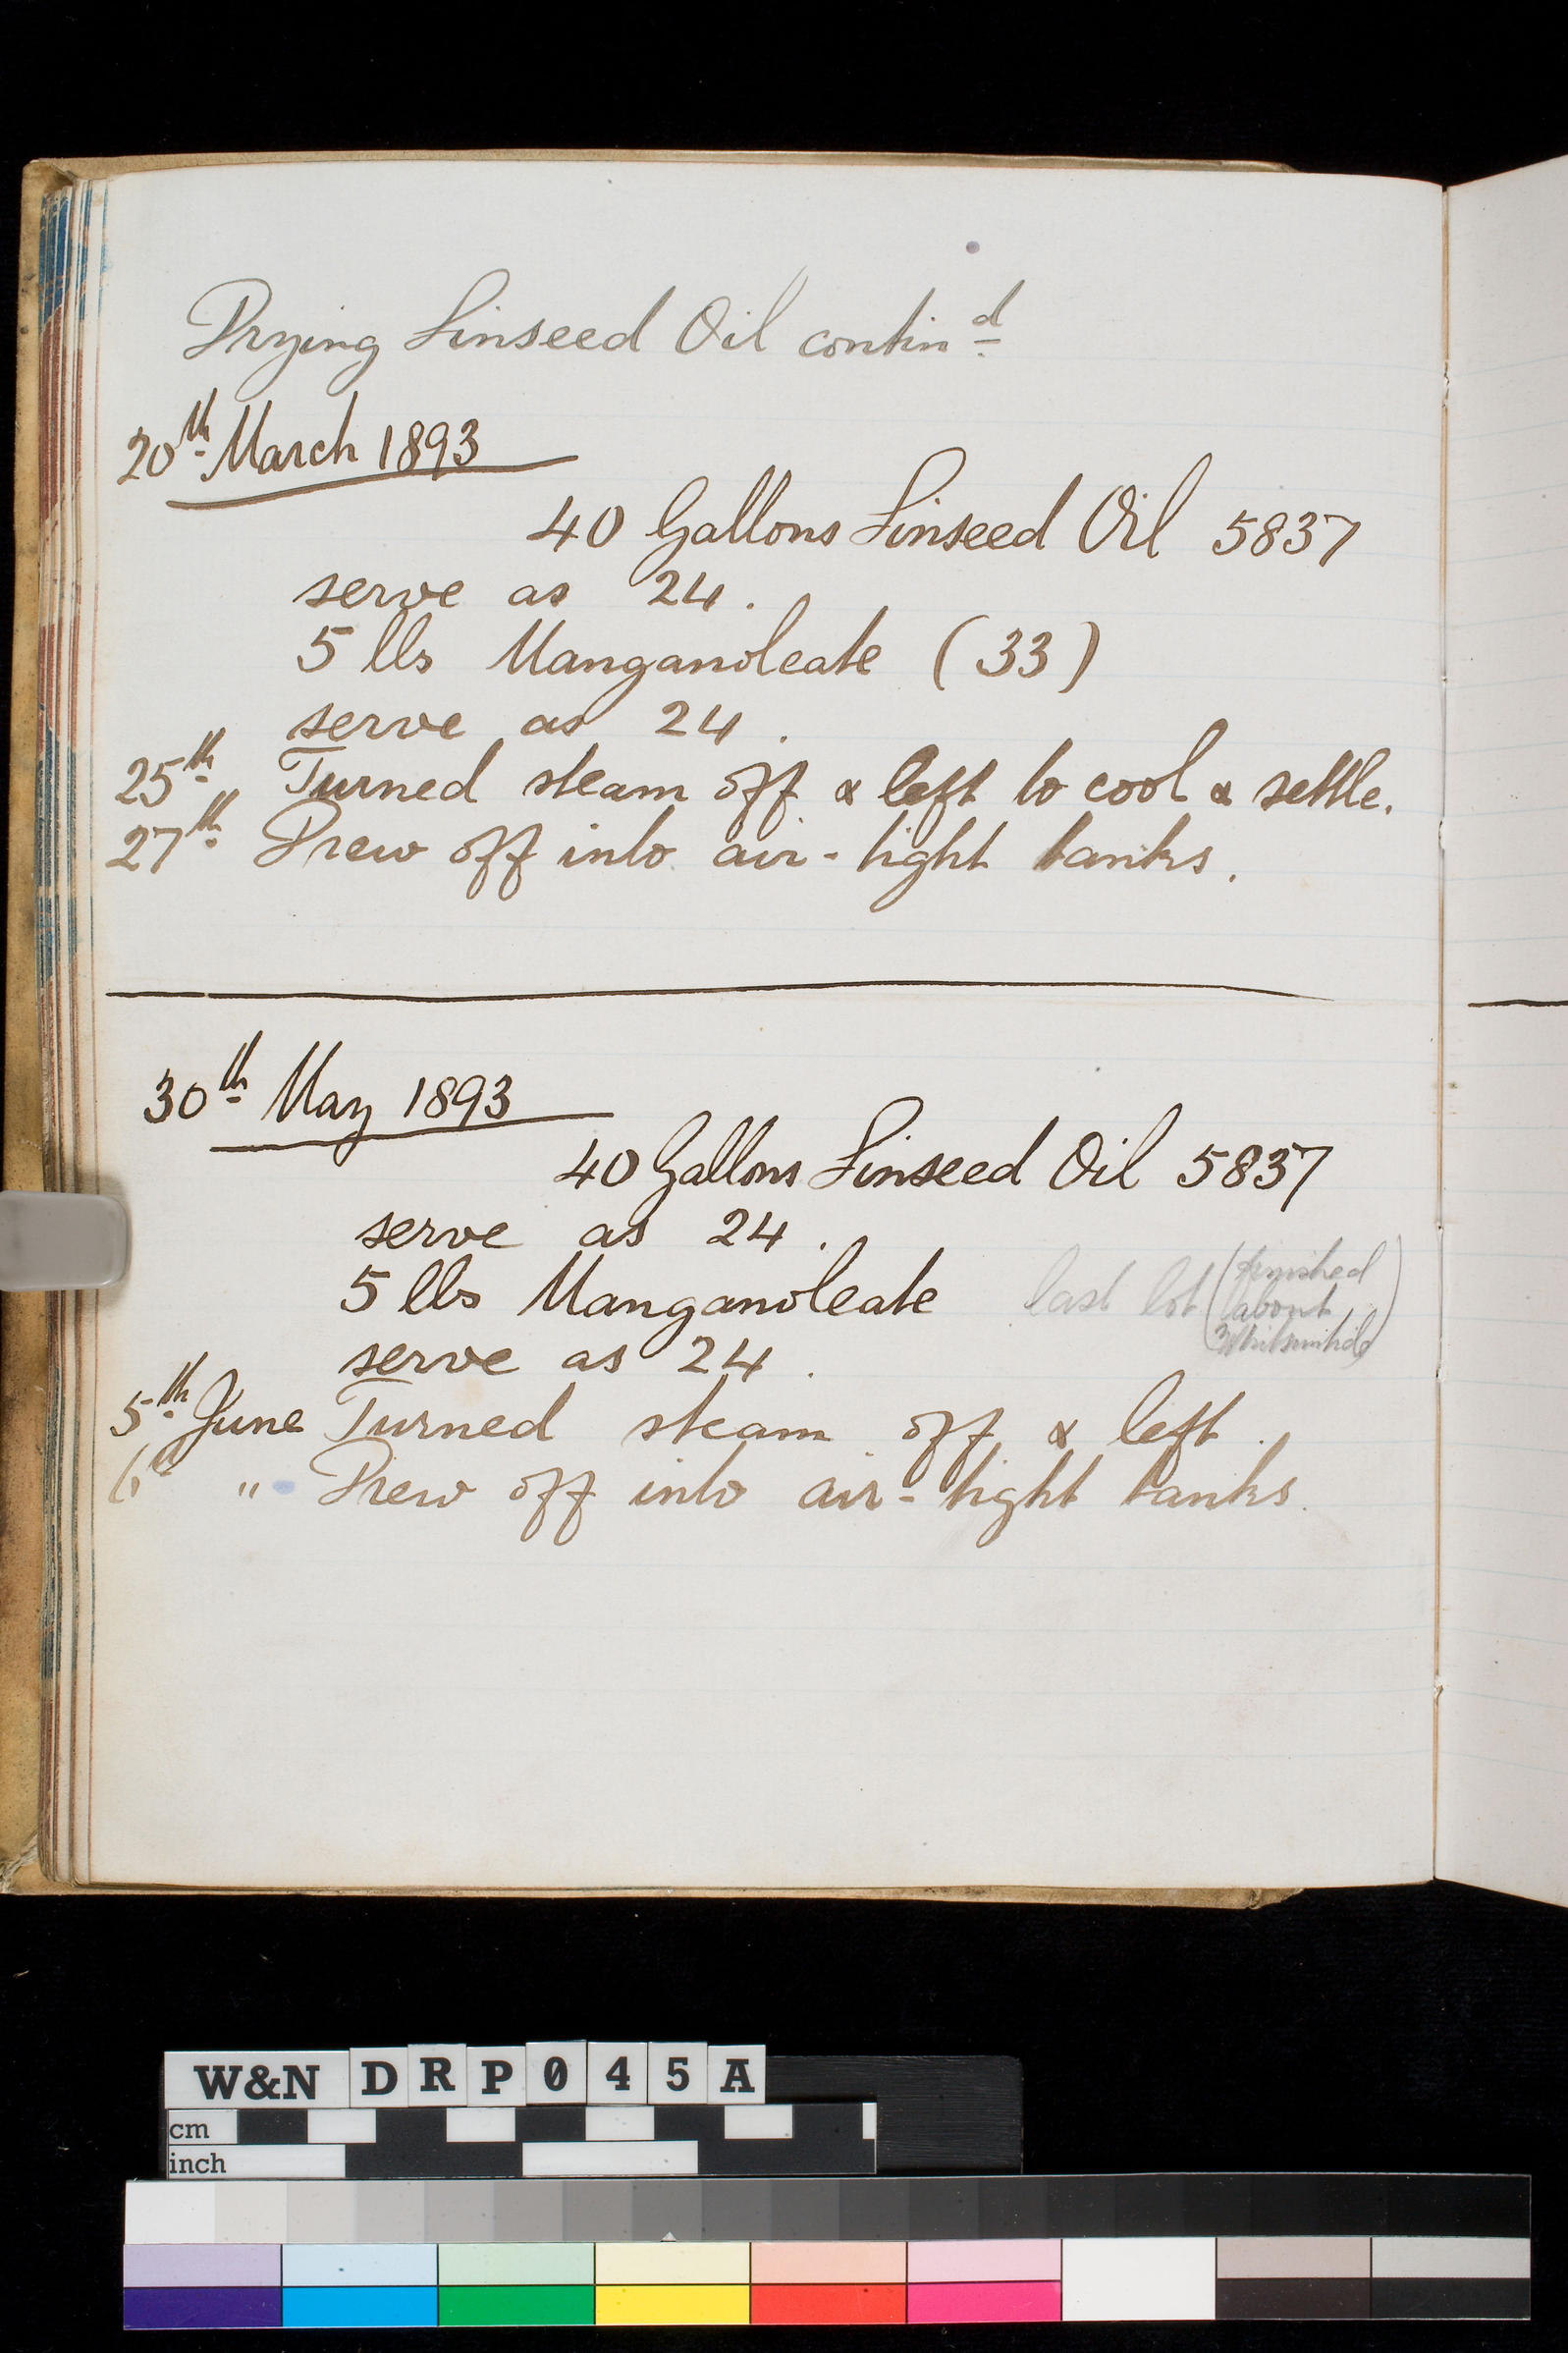 Drying Linseed Oil contin.d
20th March 1893
40 Gallons Linseed Oil 5837
serve as 24.
5 lbs Manganoleate (33)
serve as 24.
25th " Turned steam off & left to cool & settle.
27th " Drew off into air-tight tanks.
30th May 1893
40 Gallons Linseed Oil 5837
serve as 24.
5 lbs Manganoleate last lot (finished
about
Whitsuntide)
serve as 24.
5th June Turned steam off & left.
6th " Drew off into air-tight tanks.
W&N DRP045A
cm
inch